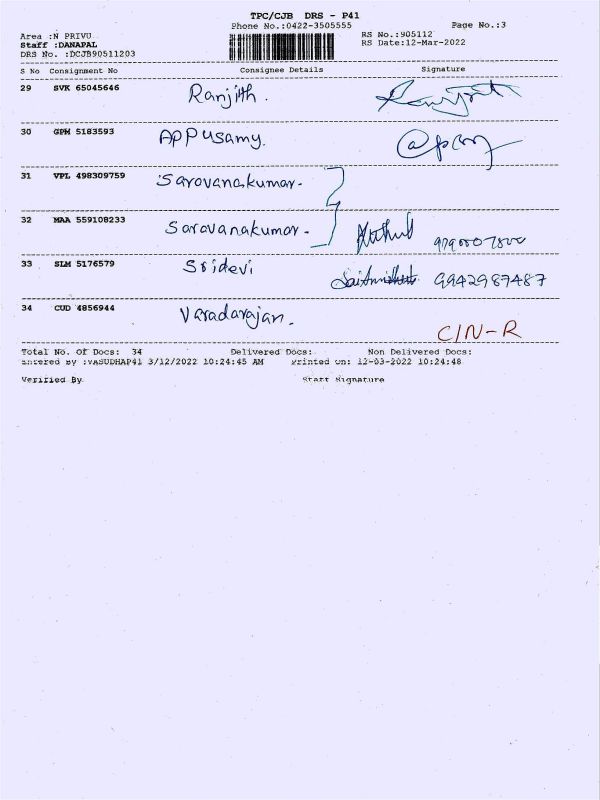 TPC/CJB DRS - P41
Phone No.:0422-3505555 Page No.:3
Area :N PRIVU RS No.:905112
Staff :DANAPAL RS Date:12-Mar-2022
DRS No. :DCJB90511203
S No Consignment No Consignee Details Signature
29 SVK 65045646 Ranjith.
30 GPM 5183593 Appusamy.
31 VPL 498309759 Saravanakumar.
32 MAA 559108233 Saravanakumar.
33 SLM 5176579 Sridevi 9942987487
34 CUD 4856944 Varadarajan. C/N-R
Total No. Of Docs: 34 Delivered Docs: Non Delivered Docs:
Entered By :VASUDHAP41 3/12/2022 10:24:45 AM Printed On: 12-03-2022 10:24:48
Verified By Staff Signature